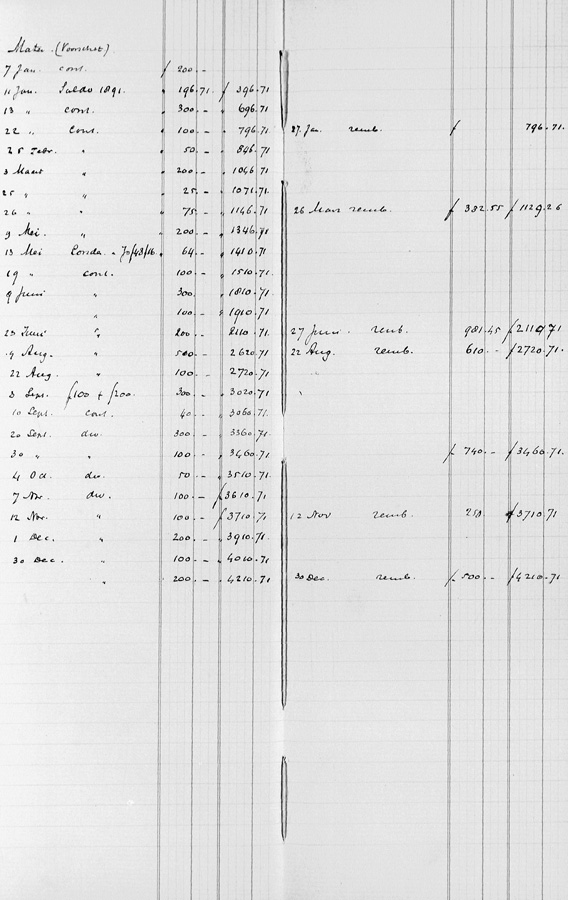 Mater (Voorschot)
7 Jan. cont. ƒ 200.-
11 Jan. Saldo 1891. " 196.71. ƒ 396.71
13 " cont. " 300.- " 696.71
22 " cont. " 100.- " 796.71 27. Jan. remb. ƒ 796.71.
25 Febr. " " 50.- " 846.71
3 Maart " " 200.- " 1046.71
25 " " " 25.- " 1071.71.
26 " " " 75.- " 1146.71 26 Mars remb. ƒ 382.55 ƒ 1129.26
9 Mei. " " 200.- " 1346.71
13 Mei " 64.- " 1410.71
19 " cont. " 100.- " 1510.71
9 Juni " 300. " 1810.71
" " 100.- " 1910.71
23 Juni " 200.- 2110.71 27 Juni. remb. 981.45 ƒ 2110.71
9 Aug. " 500.- " 2620.71 22 Aug. remb. 610.- ƒ 2720.71.
22 Aug. " 100.- " 2720.71
3 Sept. ƒ100 + ƒ200. 300.- " 3020.71
10 Sept. cont. 40.- " 3060.71.
20 Sept. div. 300.- " 3360.71.
30 " " 100.- " 3460.71 ƒ 740.- ƒ 3460.71.
4 Oct. div. 50.- " 3510.71
7 Nov. div. 100.- ƒ 3610.71
12 Nov. " 100.- ƒ 3710.71 12 Nov remb. 250 ƒ 3710.71
1 Dec. " 200.- " 3910.71.
30 Dec. " 100.- " 4010.71
" 200.- " 4210.71 30 Dec. remb. ƒ 500.- ƒ 4210.71